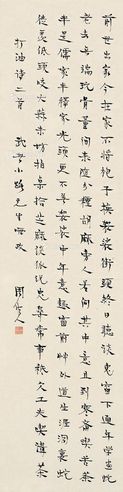 前世出家今在家不將袍子換袈裟街頭終日聽談鬼窗下通年學畫蛇
老去無端玩骨董閒來隨分種胡麻旁人若問其中意且到寒齋喫苦茶
半是儒家半釋家光頭更不著袈裟中年意趣窗前草外道生涯洞裏蛇
徒羨低頭咬大蒜未妨拍桌拾芝麻談狐說鬼尋常事祇欠工夫喫講茶
打油詩二首 武者小路先生哂政 周作人